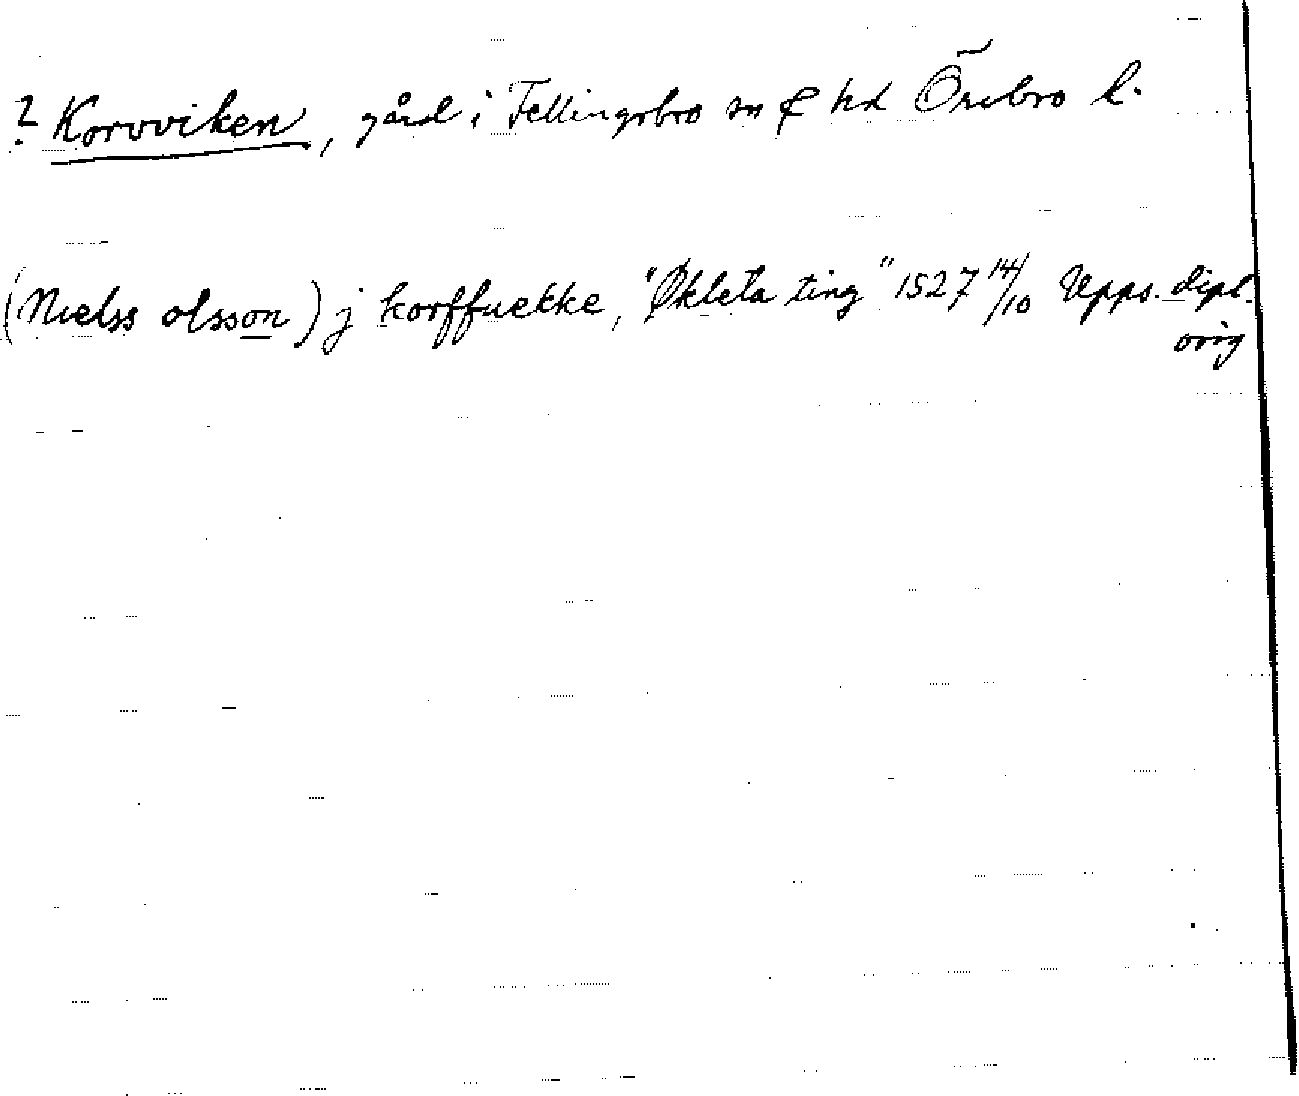 ? Korvviken, gård i Fellingsbro sn & hd Örebro l.
(Nielss olsson) j korffuekke, "Økleta ting" 1527 14/10 Upps. dipl.
orig